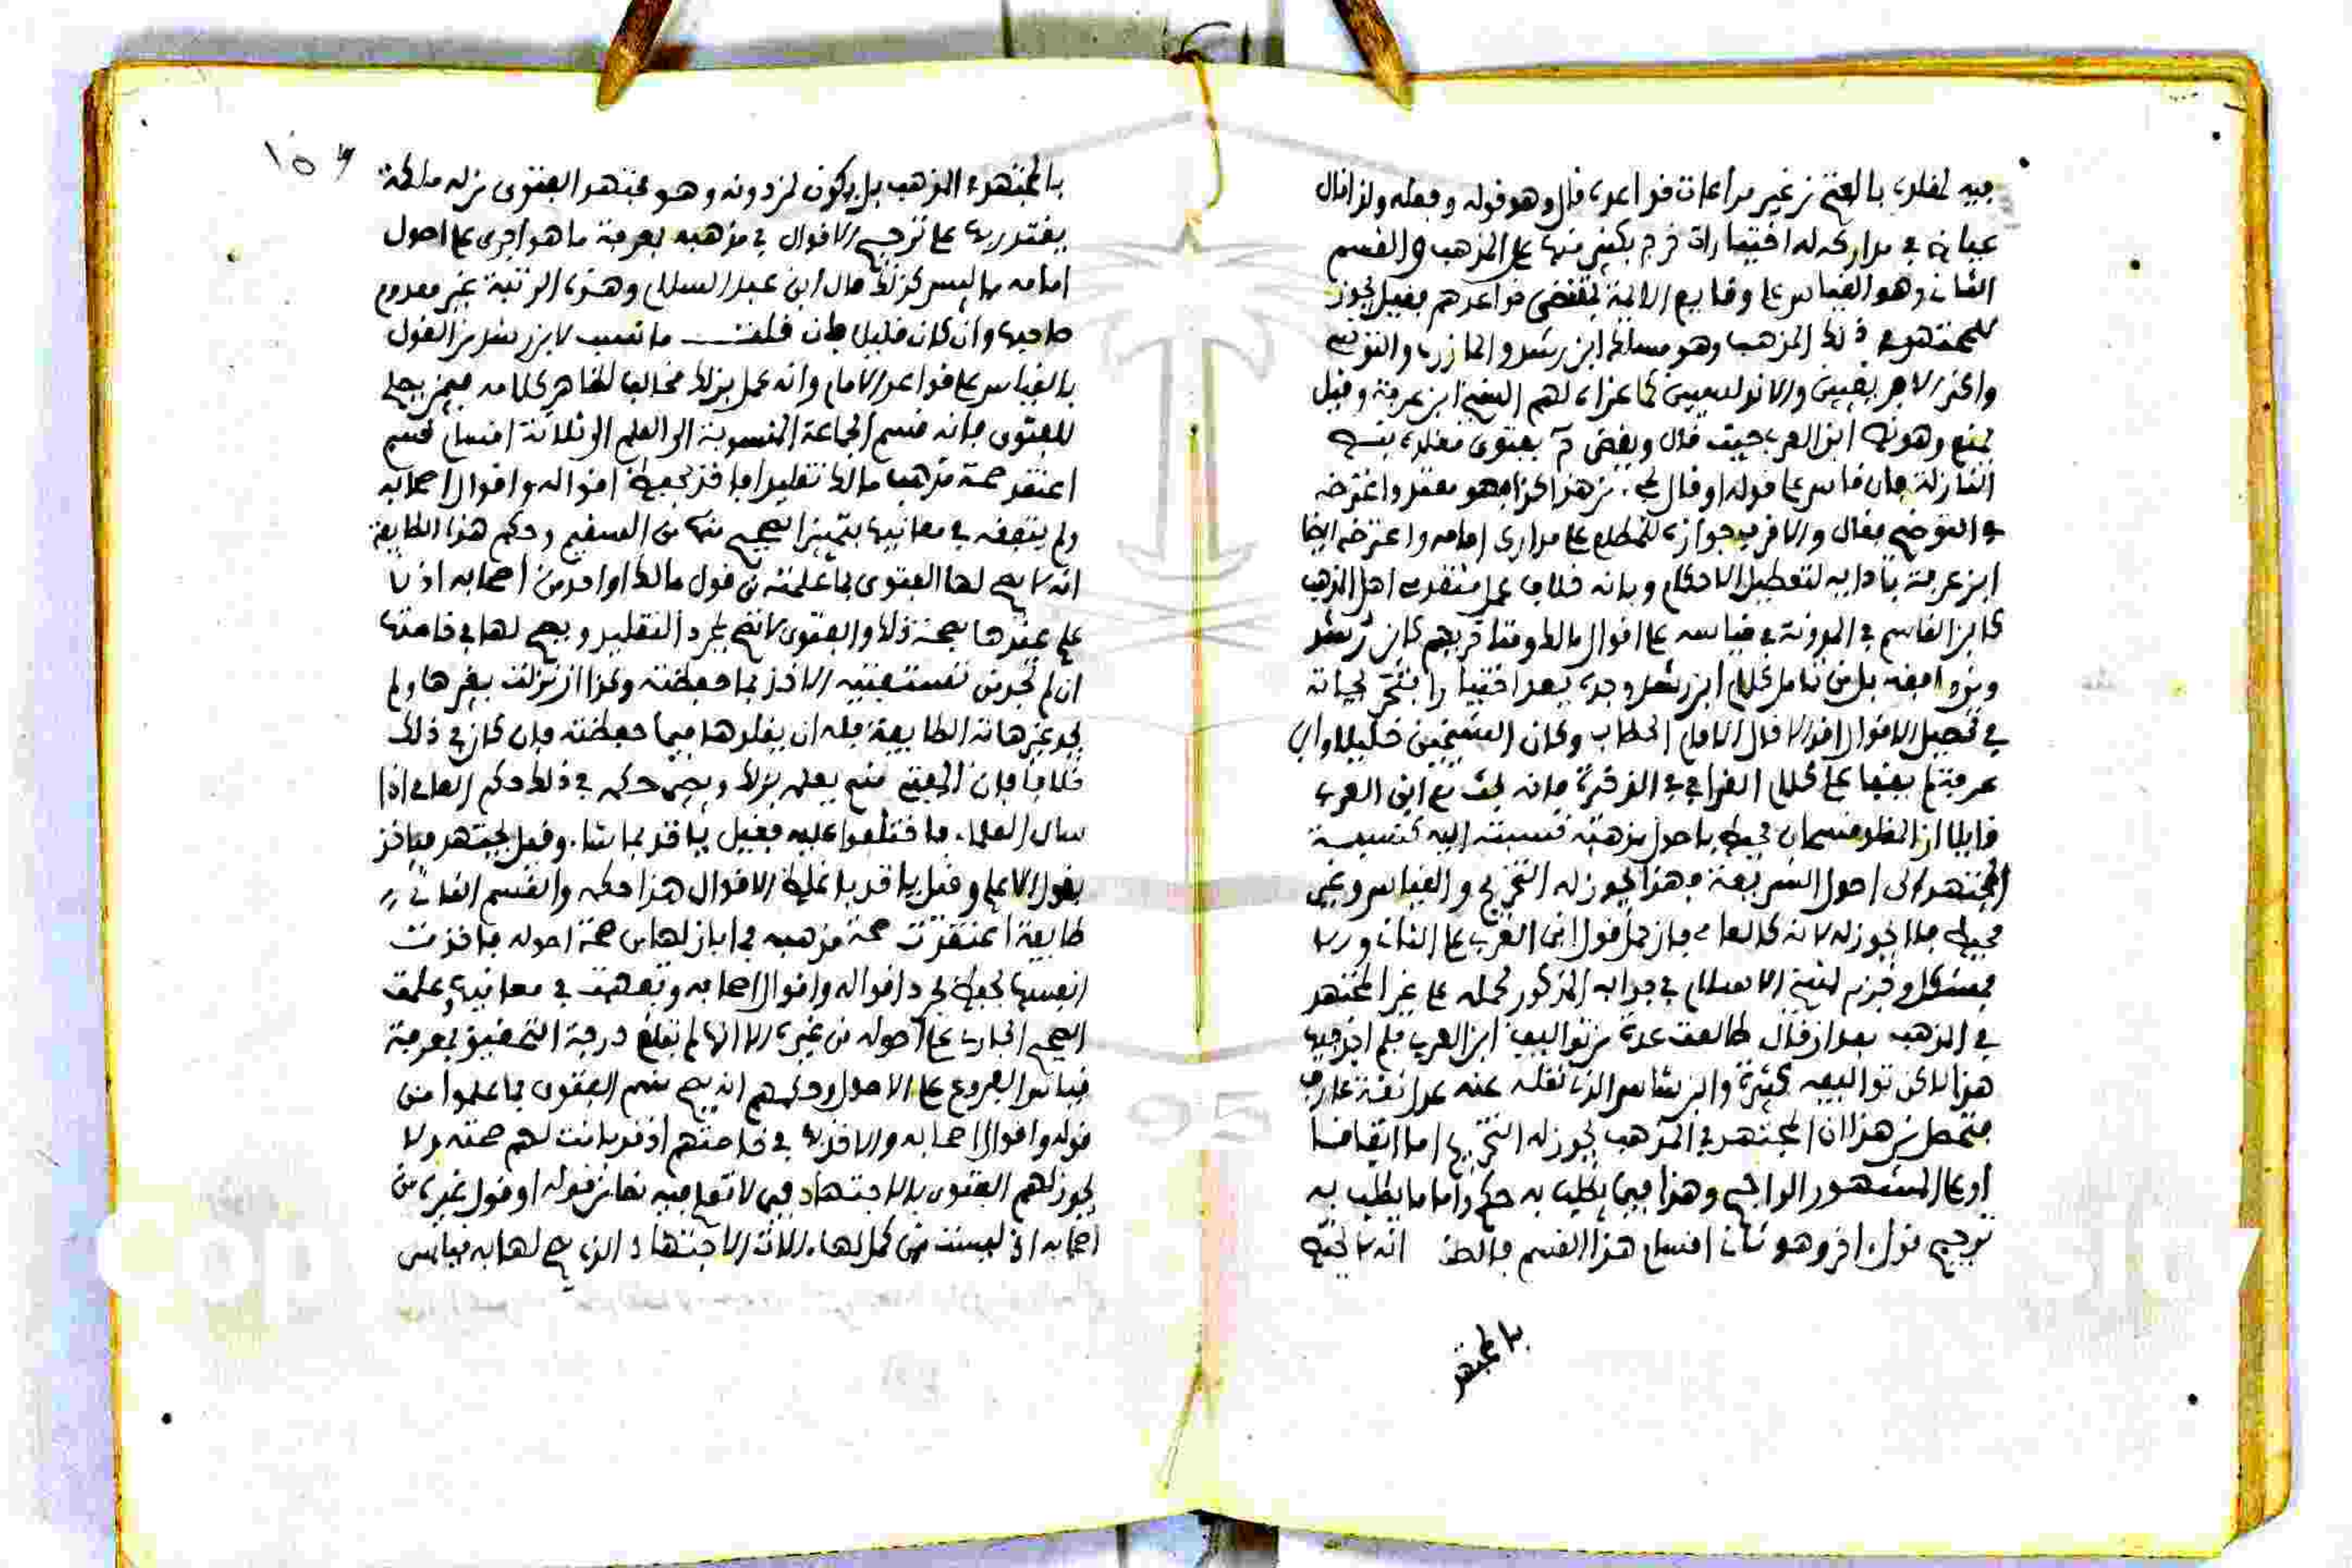 فيه لمقلده بالفتح من غير مراعات قواعده قال وهو قوله وفعله ولذا قال
عياض في مداركه له اختيارات خرج بكثير منها عن المذهب والقسم
الثاني وهو القياس على وقايع الائمة بمقتضى قواعدهم فقيل يجوز
للمجتهد في ذلك المذهب وهو مسلك ابن رشد والمازري والتونسي
واكثر الافريقيين والاندلسيين كما عزاه لهم الشيخ ابن عرفة وقيل
يمنع وهو نص ابن العربي حيث قال ويقضى ح بفتوى مقلده بنص
النازلة فان قاس على قوله او قال يجيء من هذا كذا فهو متعد واعترضه
في التوضيح فقال والاقرب جوازه للمطلع على مدارك امامه واعترضه ايضا
ابن عرفة بتاديه لتعطيل الاحكام وبانه خلاف عمل متقدمي اهل المذهب
كابن القاسم في المدونة في قياسه على اقوال مالك ومتاخريهم كابن رشد
وغيره بل من تامل كلام ابن رشد وجده يعد اختياراته بتخريجاته
في تحصيل الاقوال اقوالا قال الامام الحطاب وكان الشيخين خليلا وابن
عرفة لم يقفا على كلام القرافي في الذخيرة فانه بحث مع ابن العربي
قايلا ان المقلد قسمان محيط باصول مذهب نسبته اليه كنسبة
المجتهد الى اصول الشريعة فهذا يجوز له التخريج والقياس وغير
محيط فلا يجوز له لانه كالعامي فان حمل قول ابن العربي على الثاني والا
فمشكل وجزم شيخ الاسلام في جوابه المذكور بحمله على غير المجتهد
في المذهب بعد ان قال طالعت عدة من تواليف ابن العربي فلم اجد فيها
هذا لاكن تواليفه كثيرة وابن شاس الذي نقله عنه عدل ثقة عارف
فتحصل من هذا ان المجتهد في المذهب يجوز له التخريج اما اتفاقا
او على المشهور الراجح وهذا فيما يطلب به حكم واما ما يطلب به
ترجيح قول اخر وهو ثاني اقسام هذا القسم فالظ انه لا يختص
بالمجتهد
١٥٦
بالمجتهد في المذهب بل يكون لمن دونه وهو مجتهد الفتوى من له ملكة
يقتدر بها على ترجيح الاقوال في مذهبه بمعرفة ما هو اجرى على اصول
امامه مما ليس كذلك قال ابن عبد السلام وهذه الرتبة غير معدوم
صاحبها وان كان قليل فان قلت ما نسب لابن رشد من القول
بالقياس على قواعد الامام وانه عمل بذلك مخالف لظاهر كلامه فيمن يصلح
للفتوى فانه قسم الجماعة المنسوبة الى العلم الى ثلاثة اقسام قسم
اعتقد صحة مذهب مالك تقليدا فاخذ يحفظ اقواله واقوال اصحابه
ولم يتفقه في معانيها بتمييز الصحيح منها من السقيم وحكم هذه الطايفة
انه لا يصح لها الفتوى بما علمته من قول مالك او احد من اصحابه اذ لا
علم عندها بصحة ذلك والفتوى لا تصح بمجرد التقليد ويصح لها في خاصتها
ان لم تجد من تستفتيه الاخذ بما حفظته وكذا ان نزلت بغيرها ولم
يجد غير هاته الطايفة فله ان يقلدها فيما حفظته فان كان في ذلك
خلاف فان المفتي منهم يعلمه بذلك ويصير حكمه في ذلك حكم العامي اذا
سال العلماء فاختلفوا عليه فقيل ياخذ بما شاء وقيل يجتهد فياخذ
بقول الاعلم وقيل ياخذ باغلظ الاقوال هذا حكمه والقسم الثاني
طايفة اعتقدت صحة مذهبه بما بان لها من صحة اصوله فاخذت
انفسها بحفظ مجرد اقواله واقوال اصحابه وتفقهت في معانيها وعلمت
الصحيح الجاري على اصوله من غيره الا انها لم تبلغ درجة التحقيق بمعرفة
قياس الفروع على الاصول وحكمهم انه يصح منهم الفتوى بما علموا من
قوله واقوال اصحابه والاخذ بها في خاصتهم اذ قد بانت لهم صحته ولا
يجوز لهم الفتوى بالاجتهاد فيما لا تعلم فيه نصا من قوله او قول غيره من
اصحابه اذ ليست من كمل لها الات الاجتهاد الذي يصح لها به قياس